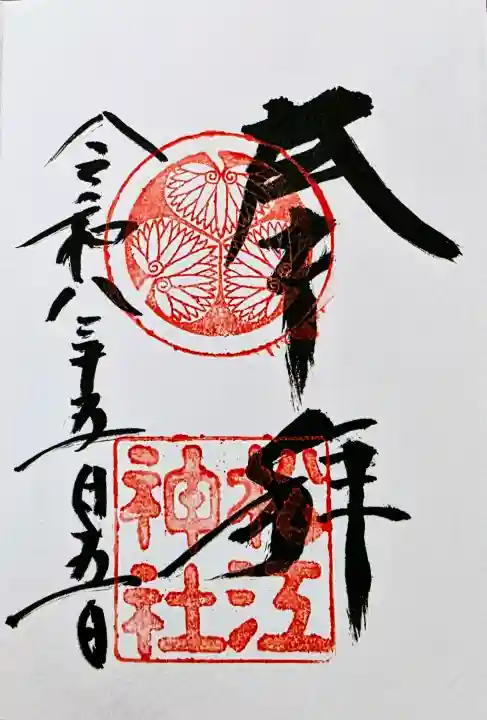 奉拝
松江
神社
令和八年五月五日